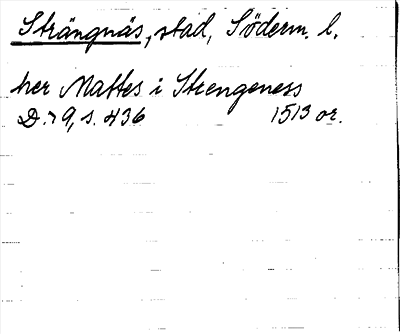 Strängnäs, stad, Söderm. l.
her Mattes i Strengeness
D. 79, s. 436 1513 or.